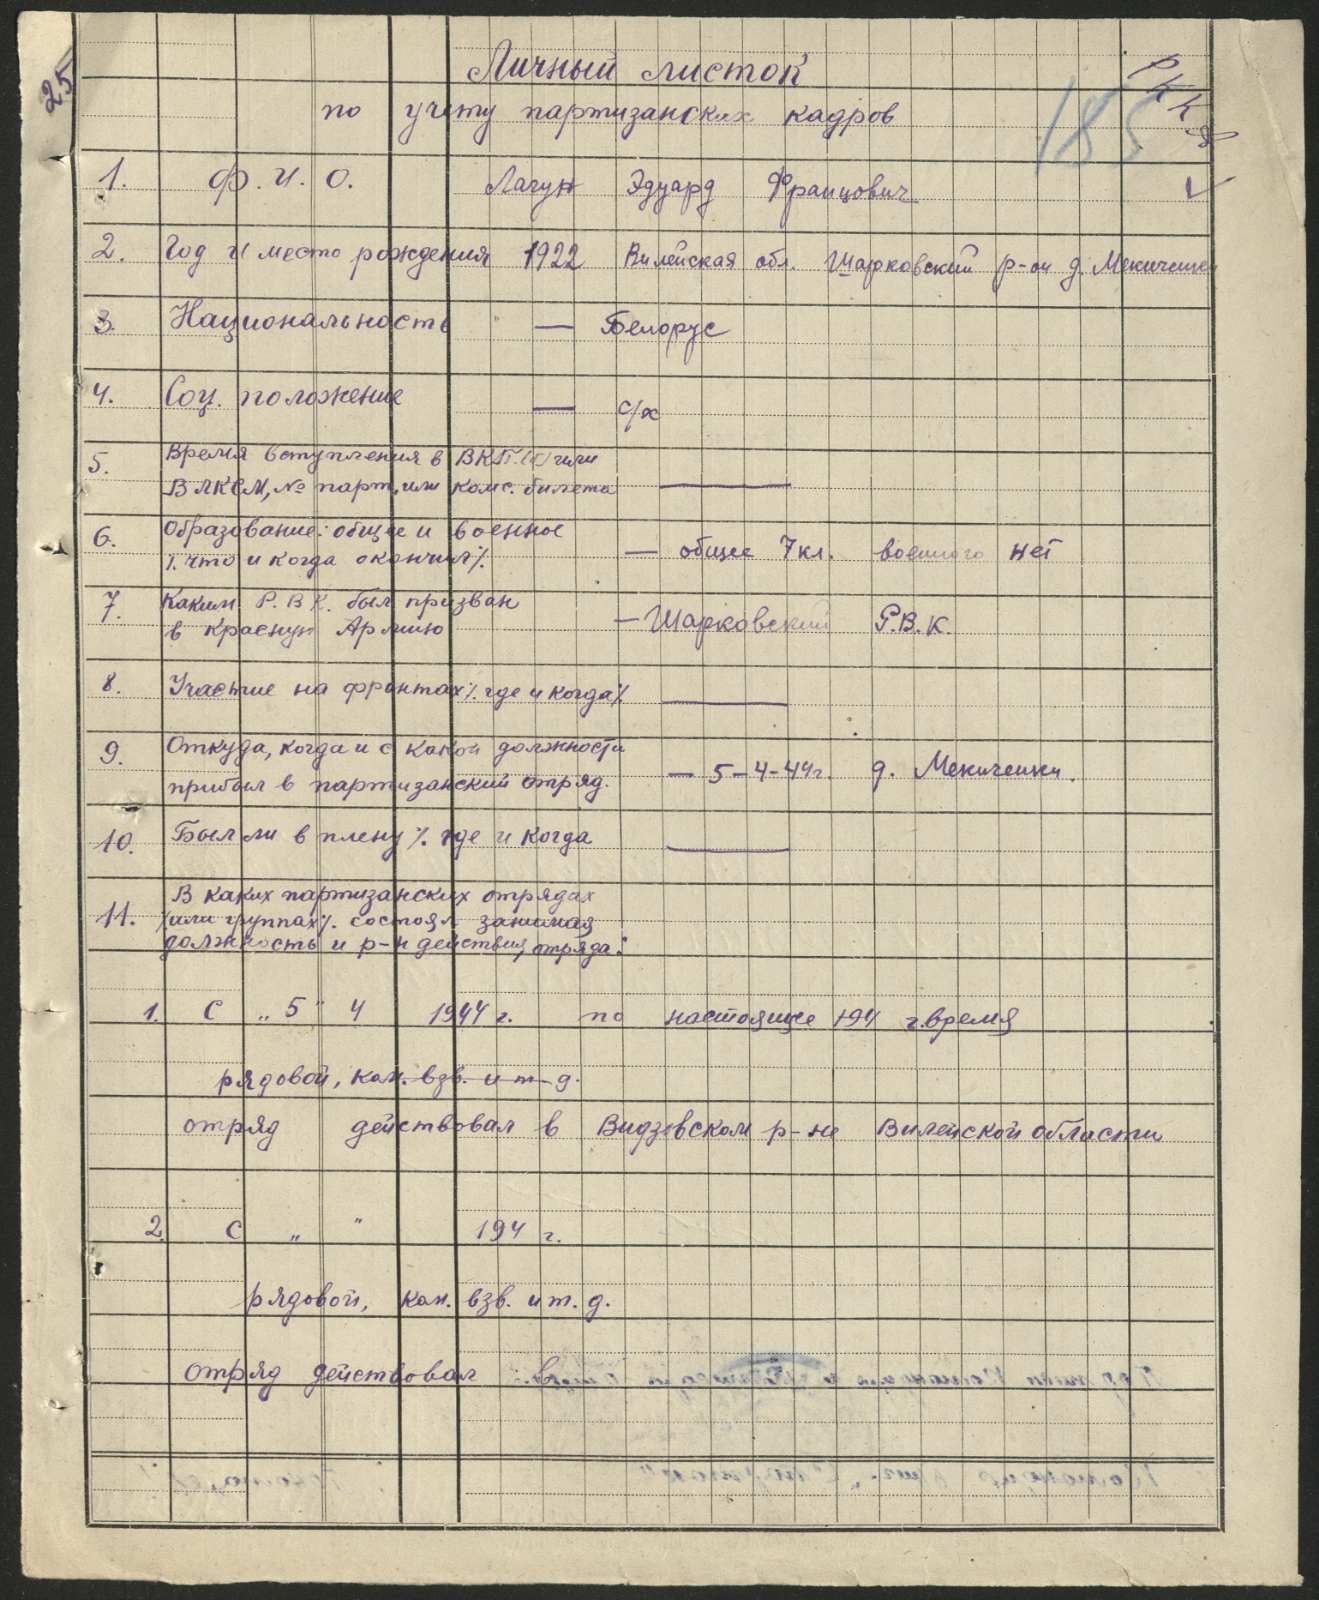 25
Личный листок
РККА
по учету партизанских кадров
185
1. Ф.И.О. Лагун Эдуард Францович
2. Год и место рождения 1922 Вилейская обл. Шарковский р-он д. Мекичеики
3. Национальность — Белорус
4. Соц. положение — с/х
5. Время вступления в ВКП.(б) или
ВЛКСМ, № парт. или комс. билета —
6. Образование: общее и военное
/. что и когда окончил/. — общее 7 кл. военного нет
7. Каким Р.В.К. был призван
в Красную Армию — Шарковский Р.В.К.
8. Участие на фронтах/. где и когда/. —
9. Откуда, когда и с какой должности
прибыл в партизанский отряд. — 5-4-44г. д. Мекичеики.
10. Был ли в плену /. где и когда —
11. В каких партизанских отрядах
/или группах/. состоял занимая
должность и р-н действия, отряда:
1. С „5" 4 1944 г. по настоящее 194 г. время
рядовой, ком. взв. и т. д.
отряд действовал в Видзовском р-не Вилейской области
2. С „ " 194 г.
рядовой, ком. взв. и т. д.
отряд действовал в